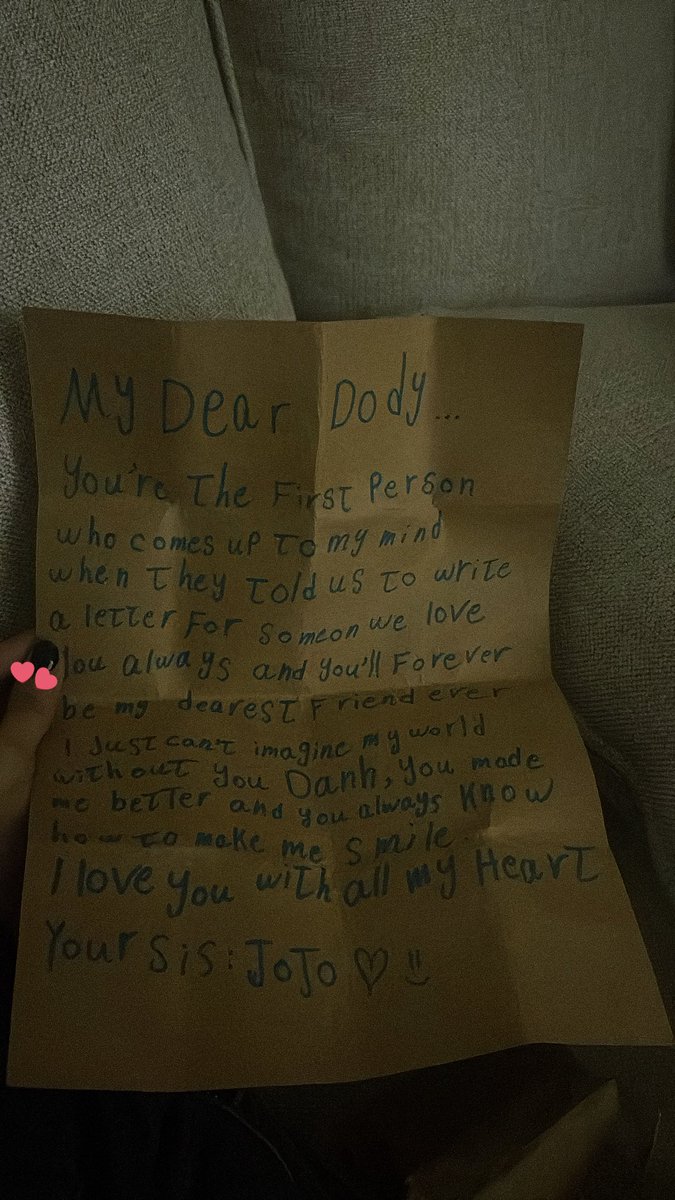 My Dear Dody...
You're The First Person
who comes up To my mind
when They Told us To write
a letter For Someon we love
You always and you'll Forever
be my dearest Friend ever
I Just can't imagine my world
without you Danh, you made
me better and you always Know
how to make me Smile
I love you with all my Heart
Your Sis: JoJo ♡ :)